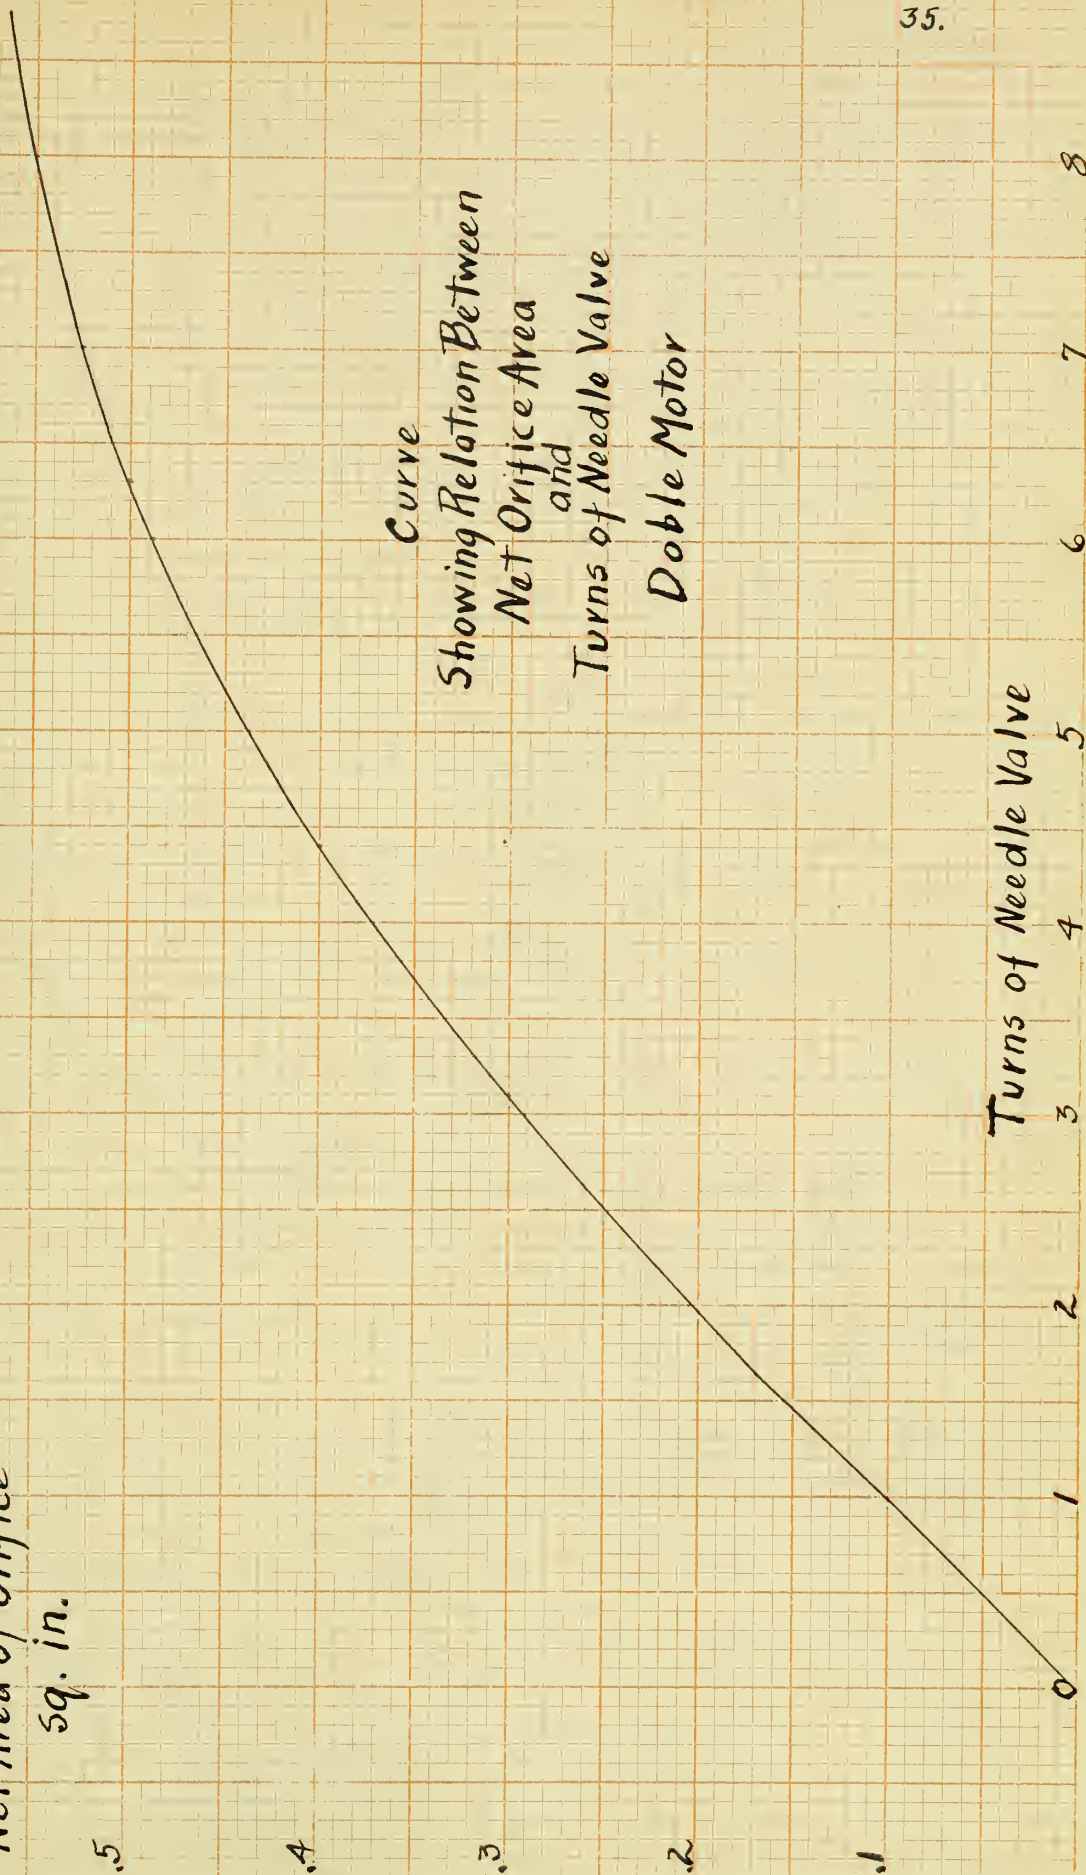 35.
Net Area of Orifice
Sq. in.
Curve
Showing Relation Between
Net Orifice Area
and
Turns of Needle Valve
Doble Motor
.5
.4
.3
.2
.1
Turns of Needle Valve
0 1 2 3 4 5 6 7 8